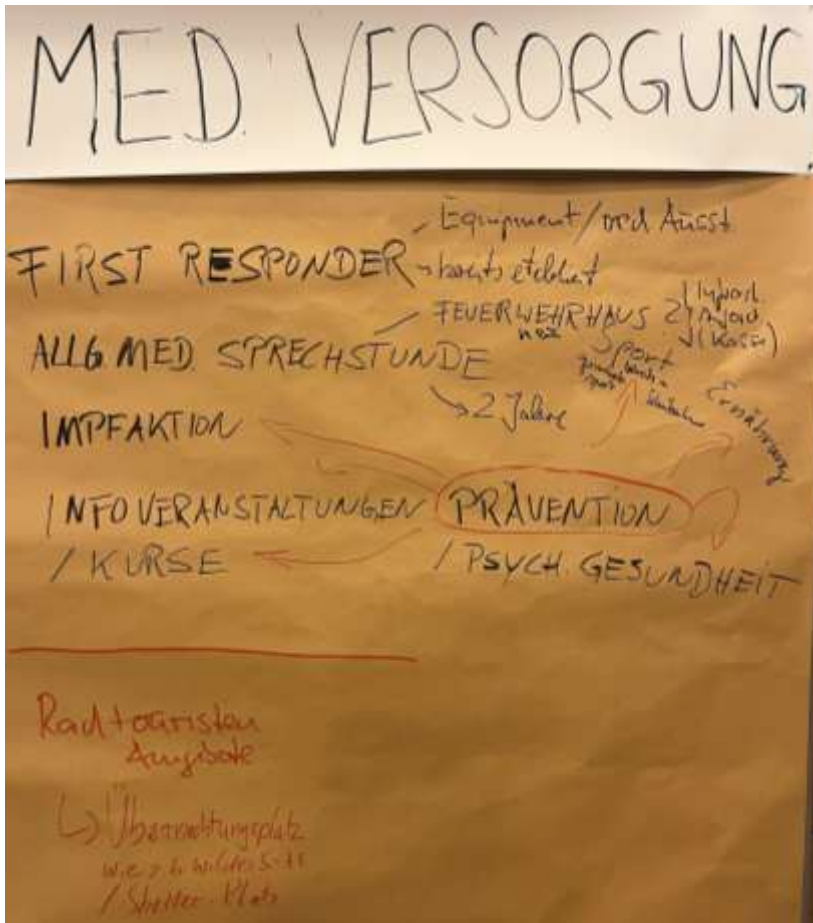 MED. VERSORGUNG
FIRST RESPONDER
Equipment/med Ausst.
ALLG. MED. SPRECHSTUNDE
FEUERWEHRHAUS
2 Jahre
Sport
Ernährung
IMPFAKTION
INFOVERANSTALTUNGEN
/ KURSE
PRÄVENTION
/ PSYCH. GESUNDHEIT
Radtouristen
Angebote
Übernachtungsplatz
/ Shelter-Platz